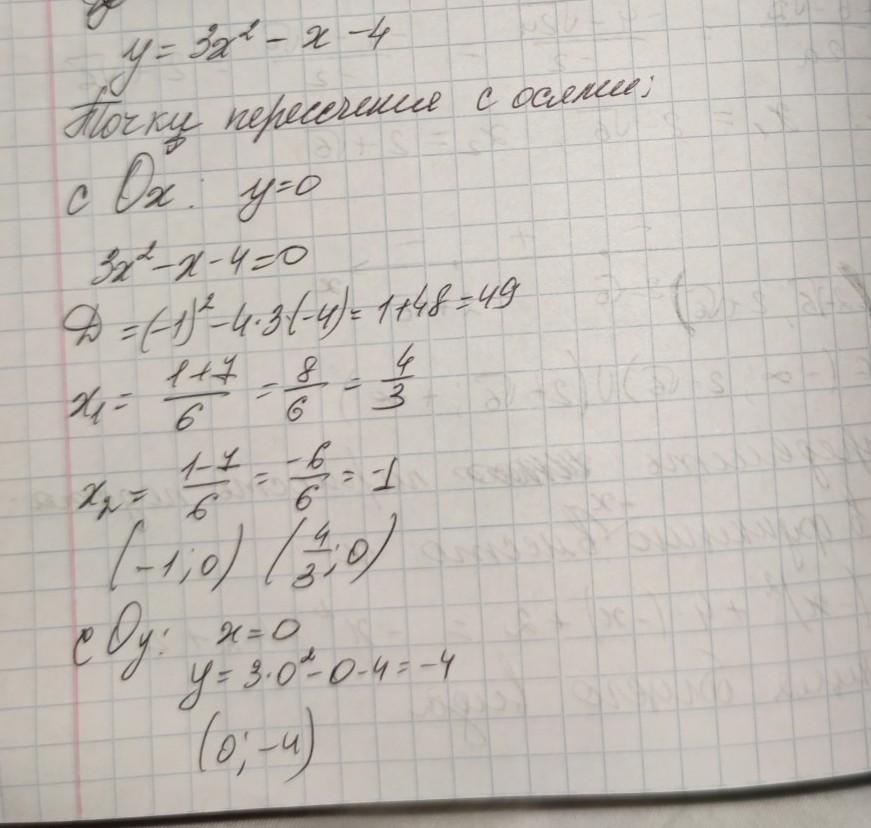 y = 3x² - x - 4
Точки пересечения с осями;
с Ox: y=0
3x² - x - 4 = 0
D = (-1)² - 4·3·(-4) = 1+48 = 49
x₁ = (1+7)/6 = 8/6 = 4/3
x₂ = (1-7)/6 = -6/6 = -1
(-1;0) (4/3;0)
с Oy: x=0
y = 3·0² - 0 - 4 = -4
(0;-4)